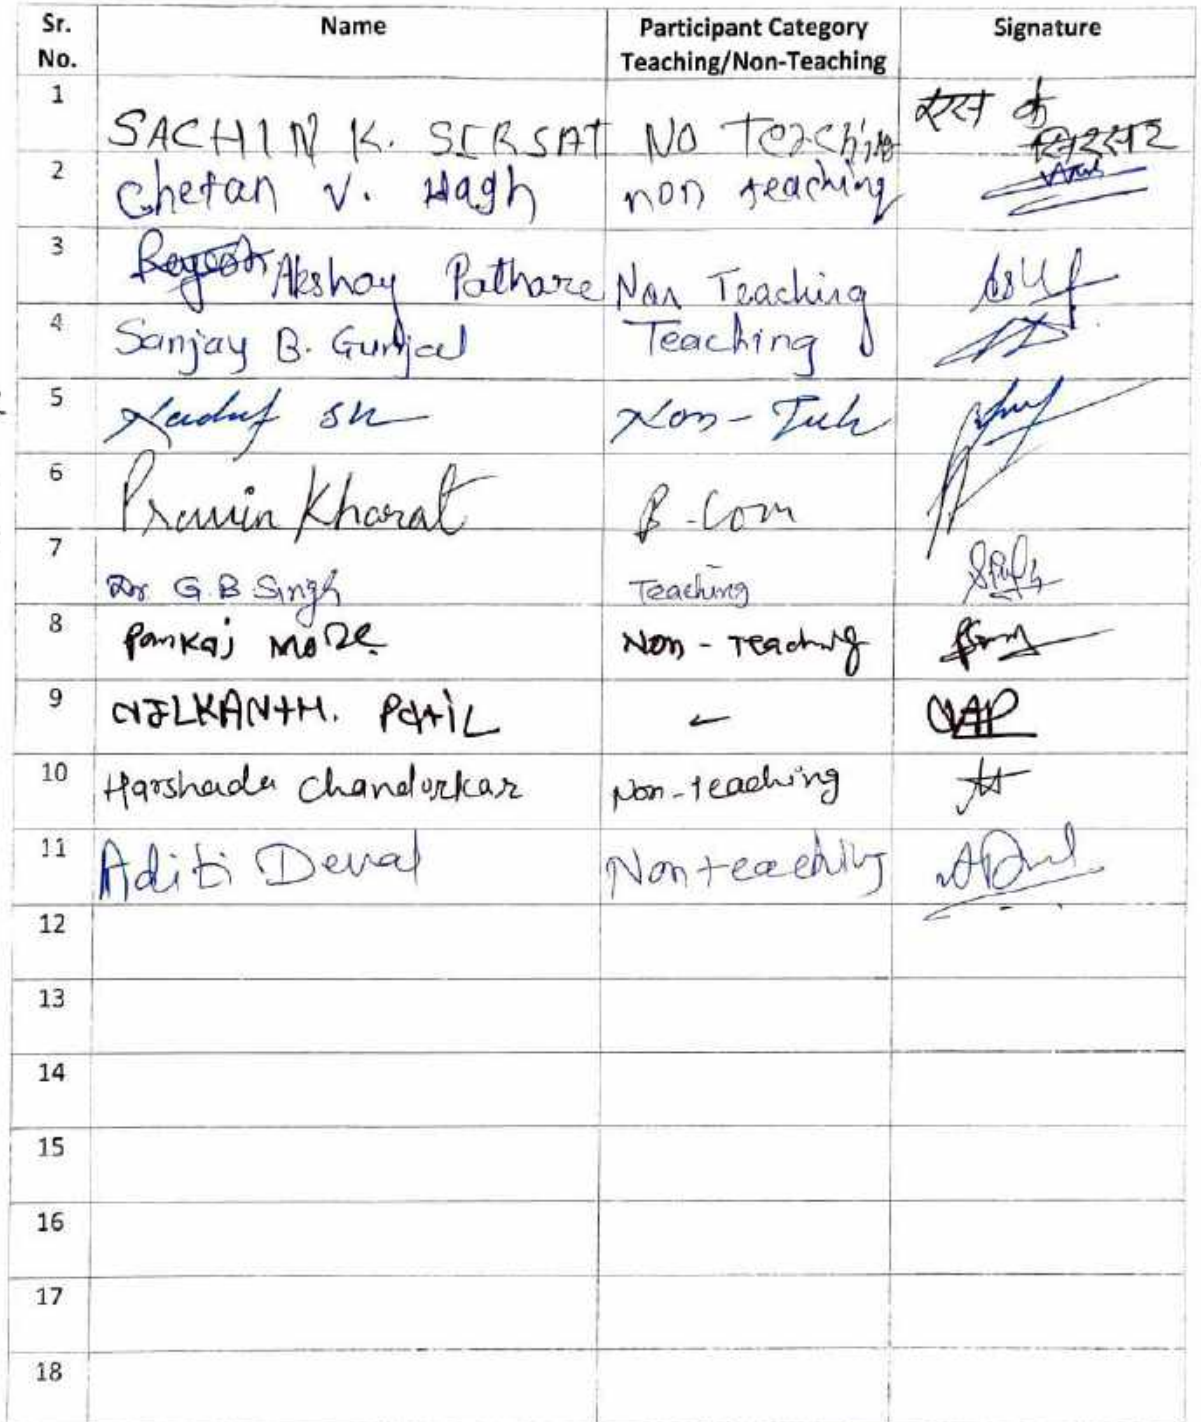 Sr. No. Name Participant Category Teaching/Non-Teaching Signature
1 SACHIN K. SIRSAT NO Teaching एस के सिरसाट
2 Chetan V. Wagh non teaching
3 Akshay Pathare Non Teaching
4 Sanjay B. Gunjal Teaching
5 Non-
6 Pravin Kharat B.Com
7 Dr G.B Singh Teaching
8 Pankaj More Non-Teaching
9 NILKANTH. PATIL -
10 Harshada Chandorkar Non-teaching
11 Aditi Deval Non teaching
12
13
14
15
16
17
18